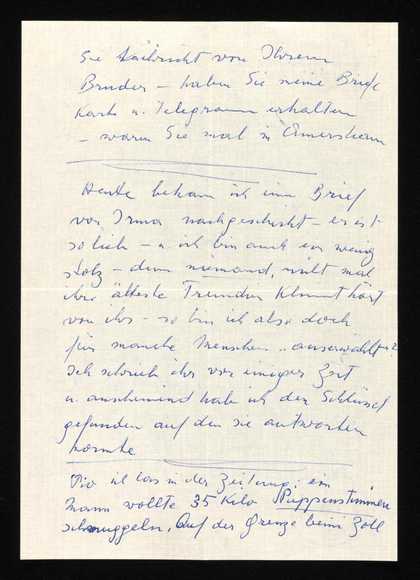 die Nachricht von Ihrem
Bruder – haben Sie meine Briefe
Karte u. Telegramm erhalten
– waren Sie mal in Amersham
Heute bekam ich einen Brief
von Irma nachgeschickt – er ist
so lieb – u. ich bin auch ein wenig
stolz – denn niemand, nicht mal
ihre älteste Freundin hört
von ihr – so bin ich also doch
für manche Menschen „auserwählt"
Ich schrieb ihr vor einiger Zeit
u. anscheinend habe ich den Schlüssel
gefunden auf den sie antworten
konnte
ich las in der Zeitung: ein
Mann wollte 35 Kilo Puppenstimmen
schmuggeln. Auf der Grenze beim Zoll